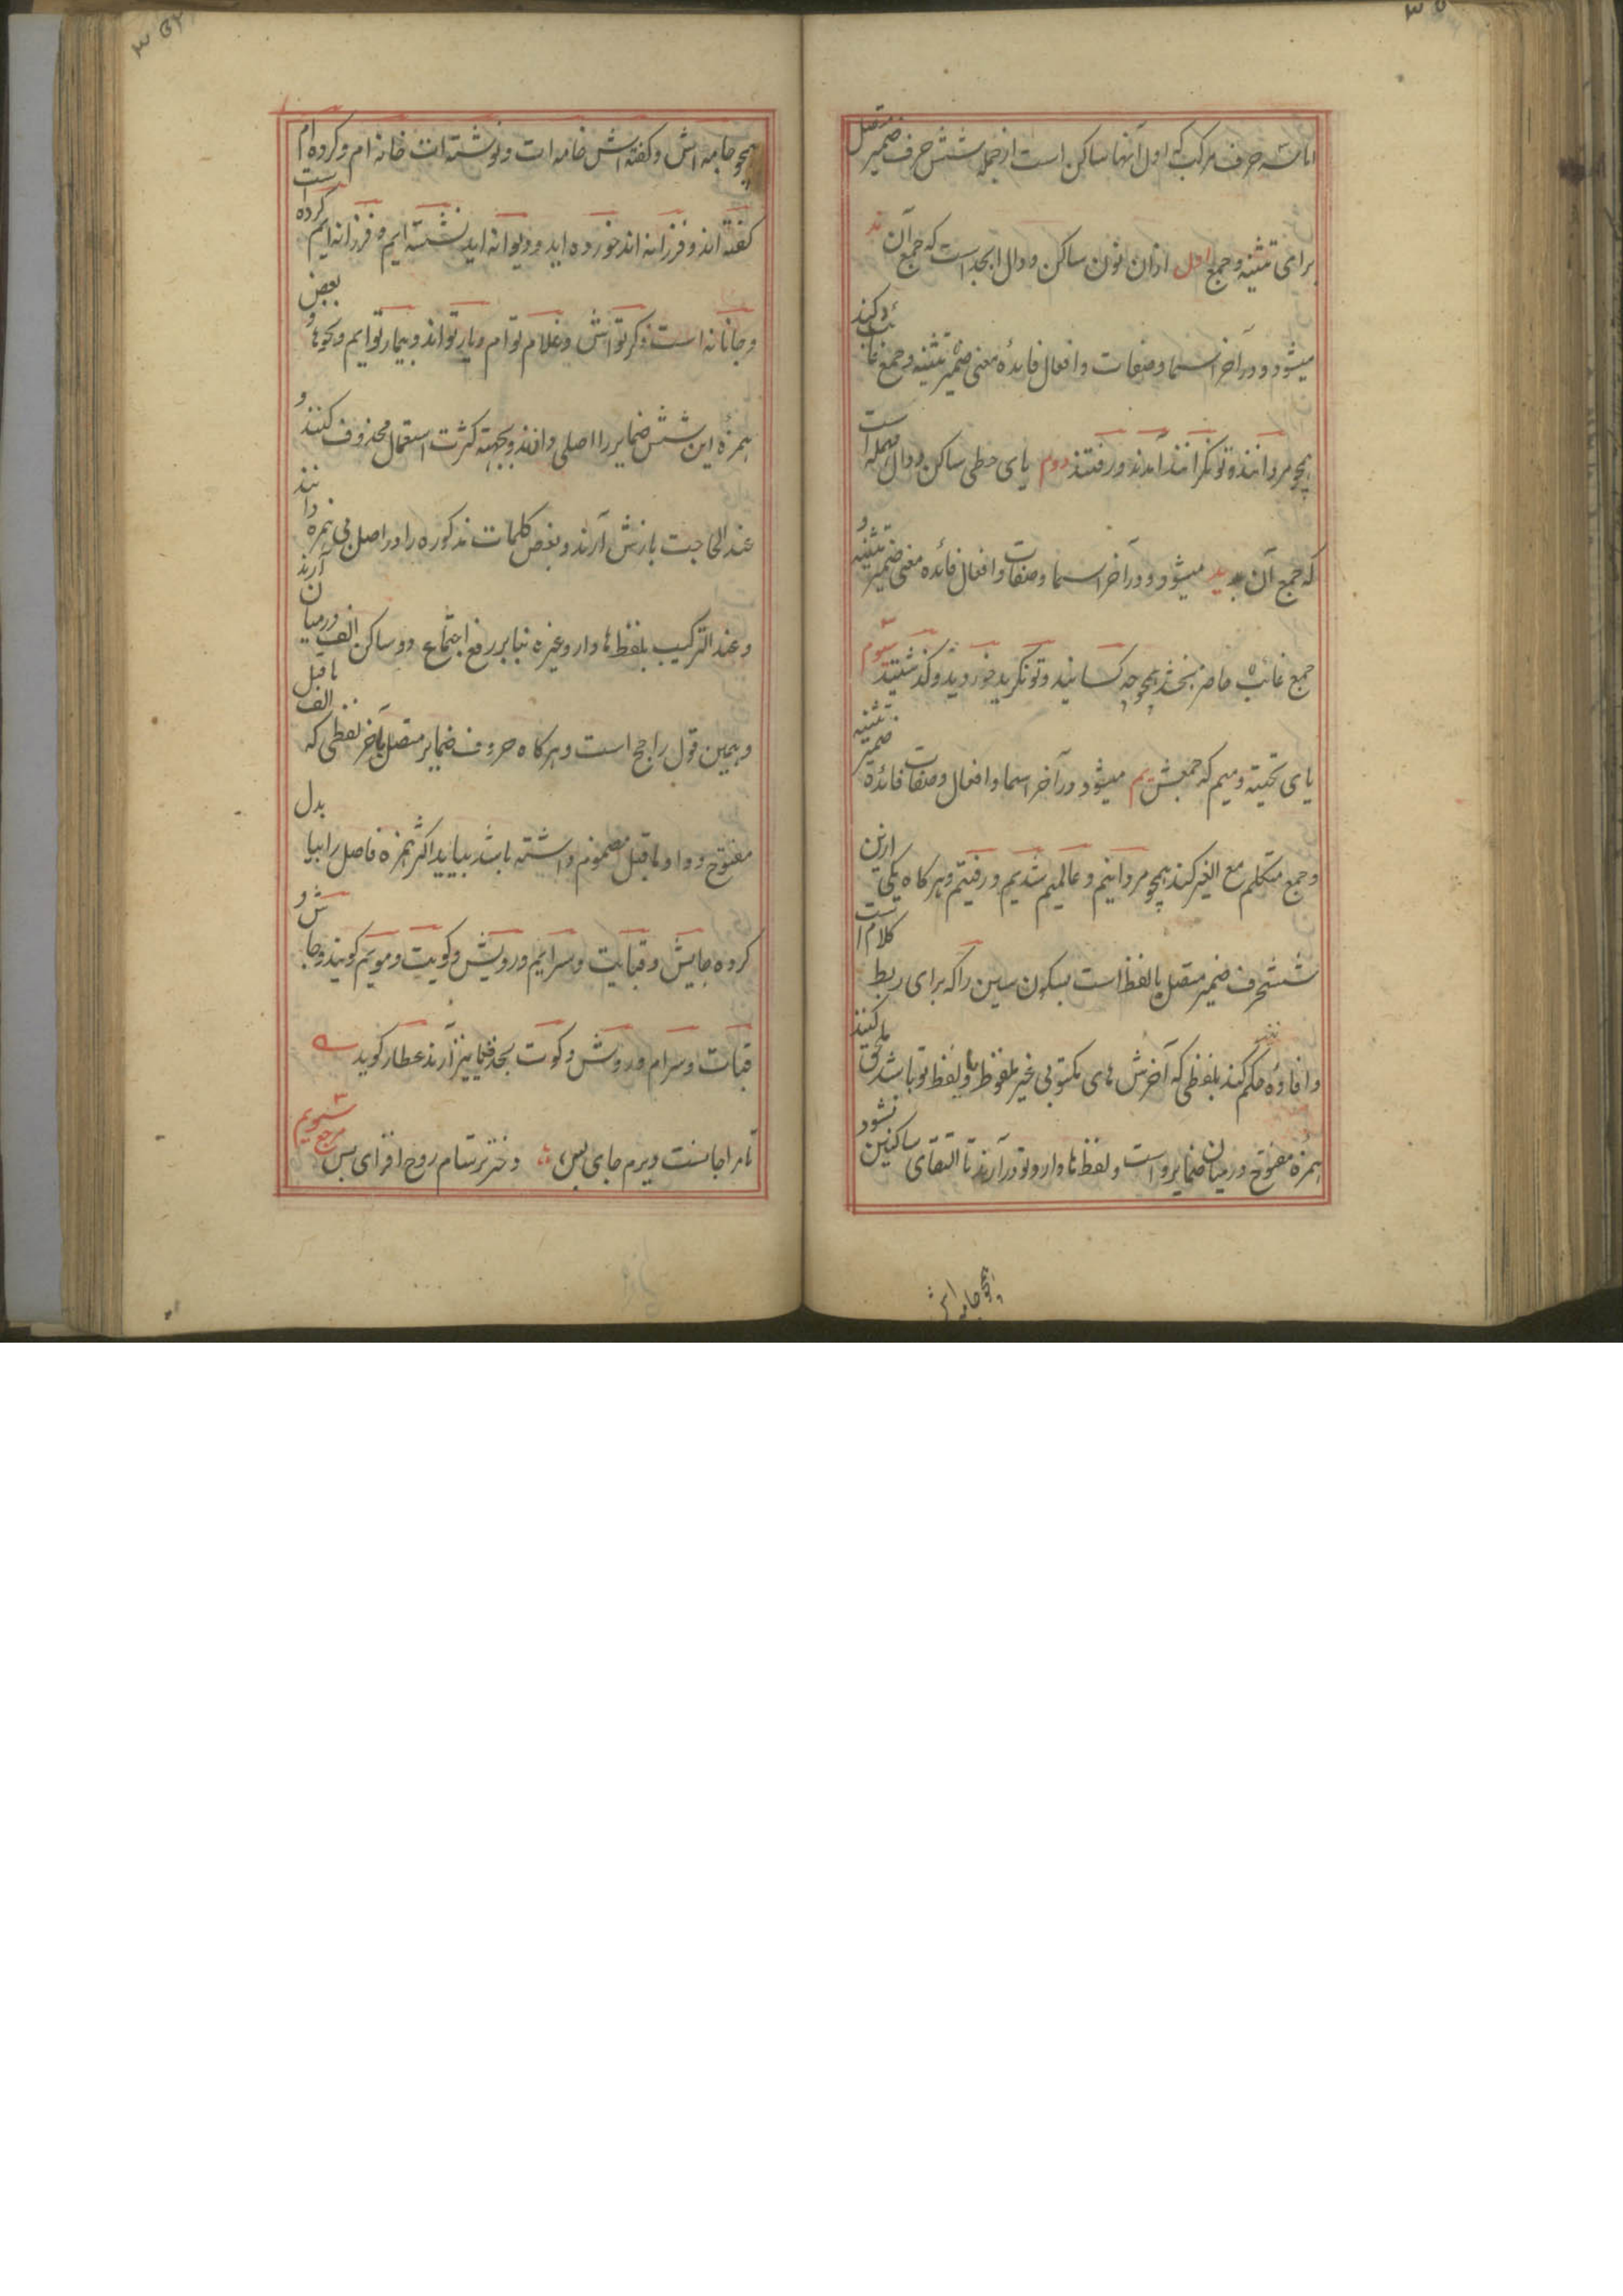 اما سه حرف مرکب که اول آنها ساکن است ازجمله شش حرف ضمیر متصل
برای تثنیه و جمع اول ازان نون ساکن و دال ابجد است که جمع آن ند
میشود و در آخر اسما و صفات و افعال فائده معنی ضمیر تثنیه و جمع غائب دکند
همچو مردانند و تونگرانند آمدند و رفتند دوم یای حطی ساکن و دال مهمله است
که جمع آن ید میشود و در آخر اسما و صفات و افعال فائده معنی ضمیر تثنیه و
جمع حاضر بخشد همچو چه کسانید و تونگرید خوردید و گذشتید سیوم
یای تحتیه و میم که جمعش یم میشود در آخر اسما و افعال و صفات فائده ضمیر تثنیه
و جمع متکلم مع الغیر کند همچو مردانیم و عالمیم شدیم و رفتیم و هرگاه یکی ازین
ششحرف ضمیر متصل یا لفظ است بسکون سین را که برای ربط کلام است
و افاده حکم کند بلفظی که آخرش های مکتوبی غیر ملفوظ یا و لفظ تو باشد ملحق کنند
همزه مفتوح درمیان ضمایر و است و لفظ ها دار و تو در آرند تا التقای ساکنین نشود
همچو جامه اش
همچو جامه اش و گفته اش خامه ات و نوشته ات خانه ام و کرده ام
گفته اند و فرزانه اند خورده اید و دیوانه اید نشسته ایم و فرزانه ایم کرده است
و جانانه است ذکر تو اش و غلام تو ام و یار تو اند و بیمار تو ایم و نحوها و بعض
همزه این شش ضمایر را اصلی دانند و بجهة کثرت استعمال محذوف کنند و
عند الحاجت بازش آرند و بعض کلمات مذکوره را در اصل بی همزه دانند
و عند الترکیب بلفظ ها دار و غیره بنا بر رفع اجتماع دو ساکن الف درمیان آرند
و همین قول راجح است و هرگاه حروف ضمایر متصل بآخر لفظی که الف ماقبل
مفتوح و واو ماقبل مضموم داشته باشد بیاید اکثر همزه فاصل را بیا بدل
کرده جایش و قبایت و سرایم و رویش و کویت و مویم گویند و جاش و
قبات و سرام و روش و کوت بحذفیا نیز آرند عطار گوید
تا مرا جانست ویرم جای بس دختر ترسام روح افزای بس مرجع سیویم